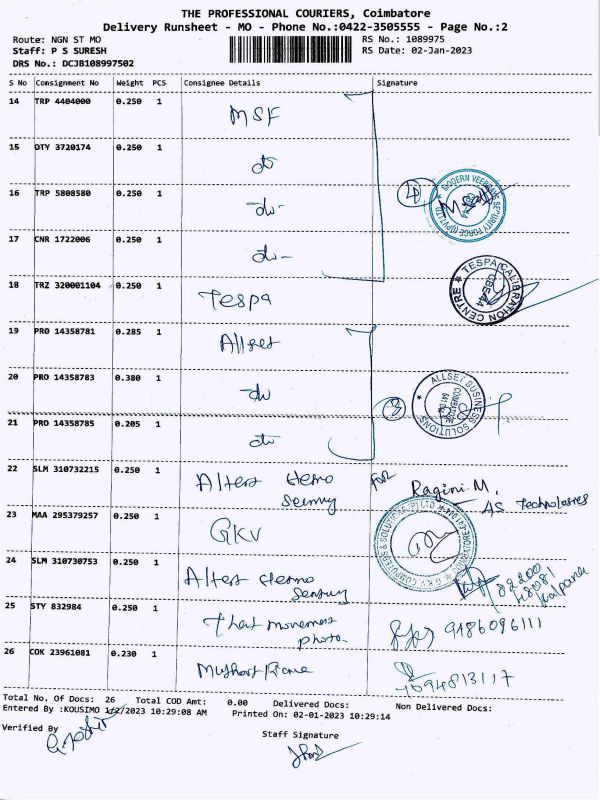 THE PROFESSIONAL COURIERS, Coimbatore
Delivery Runsheet - MO - Phone No.:0422-3505555 - Page No.:2
Route: NGN ST MO
RS No.: 1089975
Staff: P S SURESH
RS Date: 02-Jan-2023
DRS No.: DCJB108997502
S No Consignment No Weight PCS Consignee Details Signature
14 TRP 4404000 0.250 1 MSF
15 DTY 3720174 0.250 1 do
16 TRP 5808580 0.250 1 -do-
4 MODERN VEERAN'S SECURITY FORCE (I) PVT LTD
17 CNR 1722006 0.250 1 do-
18 TRZ 320001104 0.250 1 Tespa
TESPA CALIBRATION CENTRE CBE-44
19 PRO 14358781 0.285 1 Allset
20 PRO 14358783 0.380 1 -do
3 ALLSET BUSINESS SOLUTIONS COIMBATORE
21 PRO 14358785 0.205 1 do
22 SLM 310732215 0.250 1
for Ragini.M.
AS Technologies
23 MAA 295379257 0.250 1 GKV
24 SLM 310730753 0.250 1
82200
48081
Kalpana
25 STY 832984 0.250 1 That movement
photo.
9186096111
26 COK 23961081 0.230 1
Total No. Of Docs: 26 Total COD Amt: 0.00 Delivered Docs: Non Delivered Docs:
Entered By :KOUSIMO 1/2/2023 10:29:08 AM Printed On: 02-01-2023 10:29:14
Verified By
Staff Signature